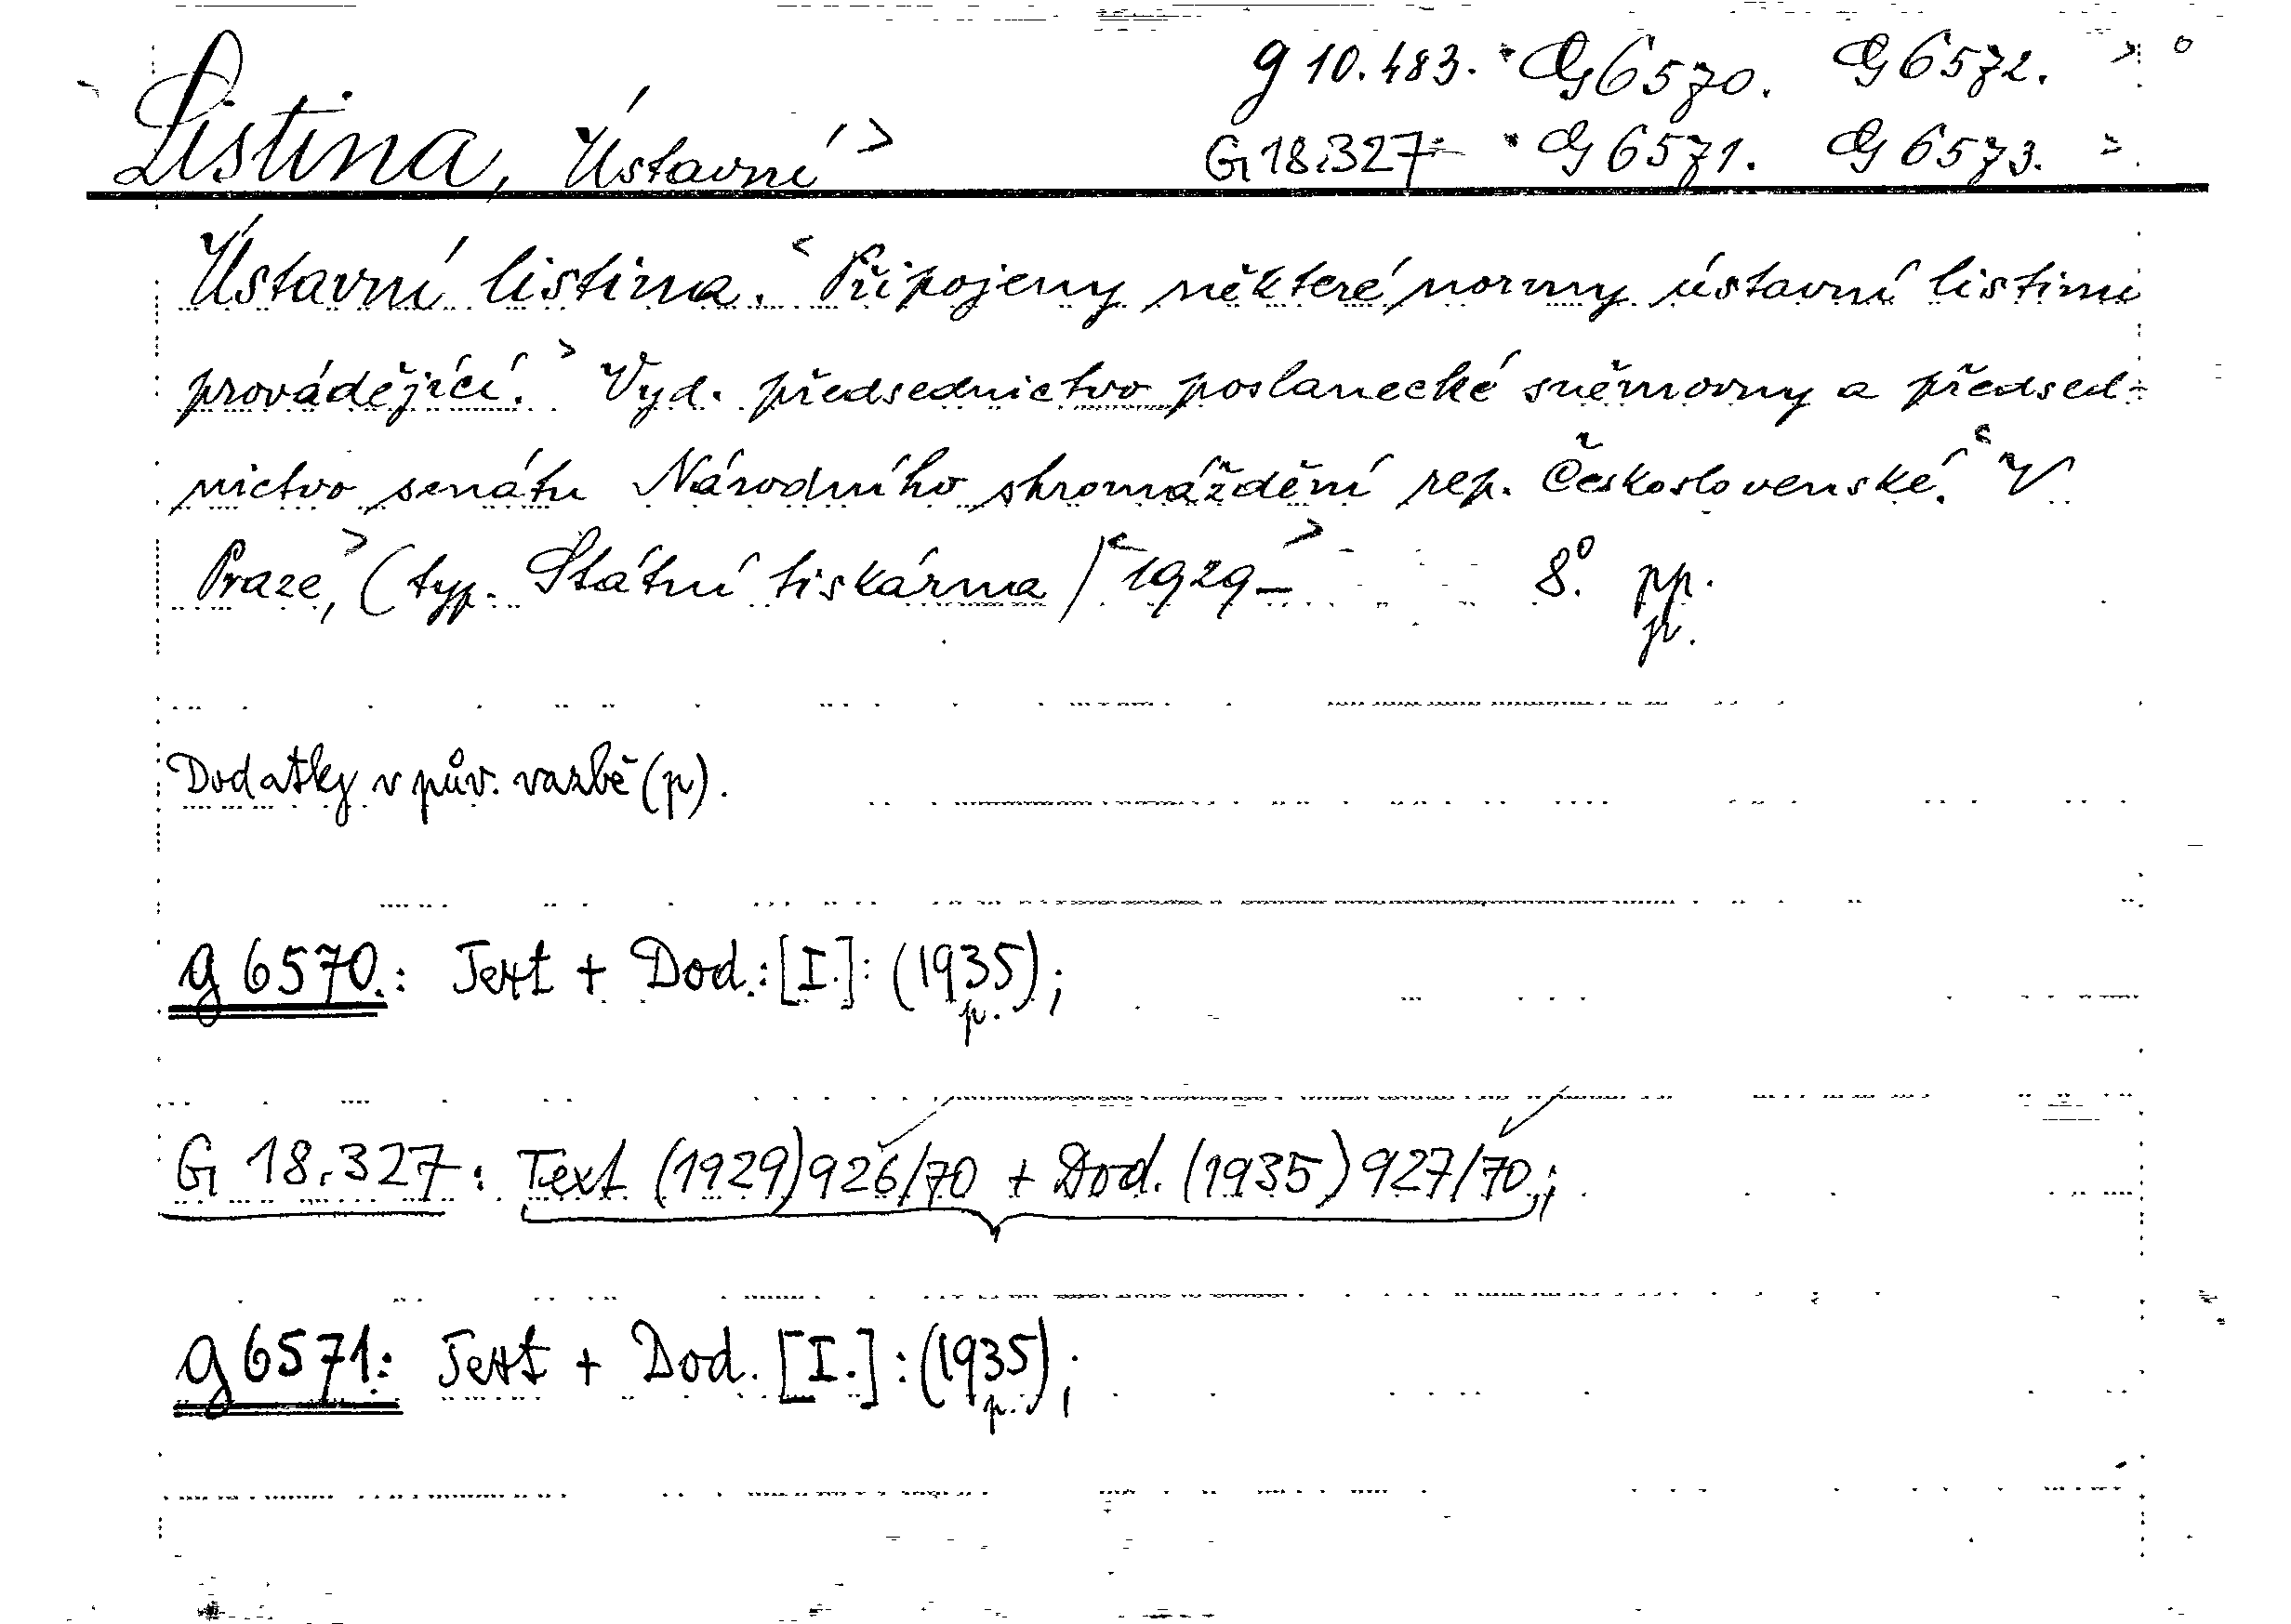 g 10.483. G 6570. G 6572.
Listina, Ústavní G 18.327 G 6571. G 6573.
Ústavní listina. Připojeny některé normy ústavní listinu
provádějící. Vyd. předsednictvo poslanecké sněmovny a předsed-
nictvo senátu Národního shromáždění rep. Československé. V
Praze, (typ. Státní tiskárna) 1929- 8°. pp.
p.
Dodatky v pův. vazbě (p).
g 6570.: Text + Dod.: [I.]: (1935);
p.
G 18.327: Text (1929) 926/70 + Dod. (1935) 927/70.;
g 6571.: Text + Dod. [I.]: (1935);
p.